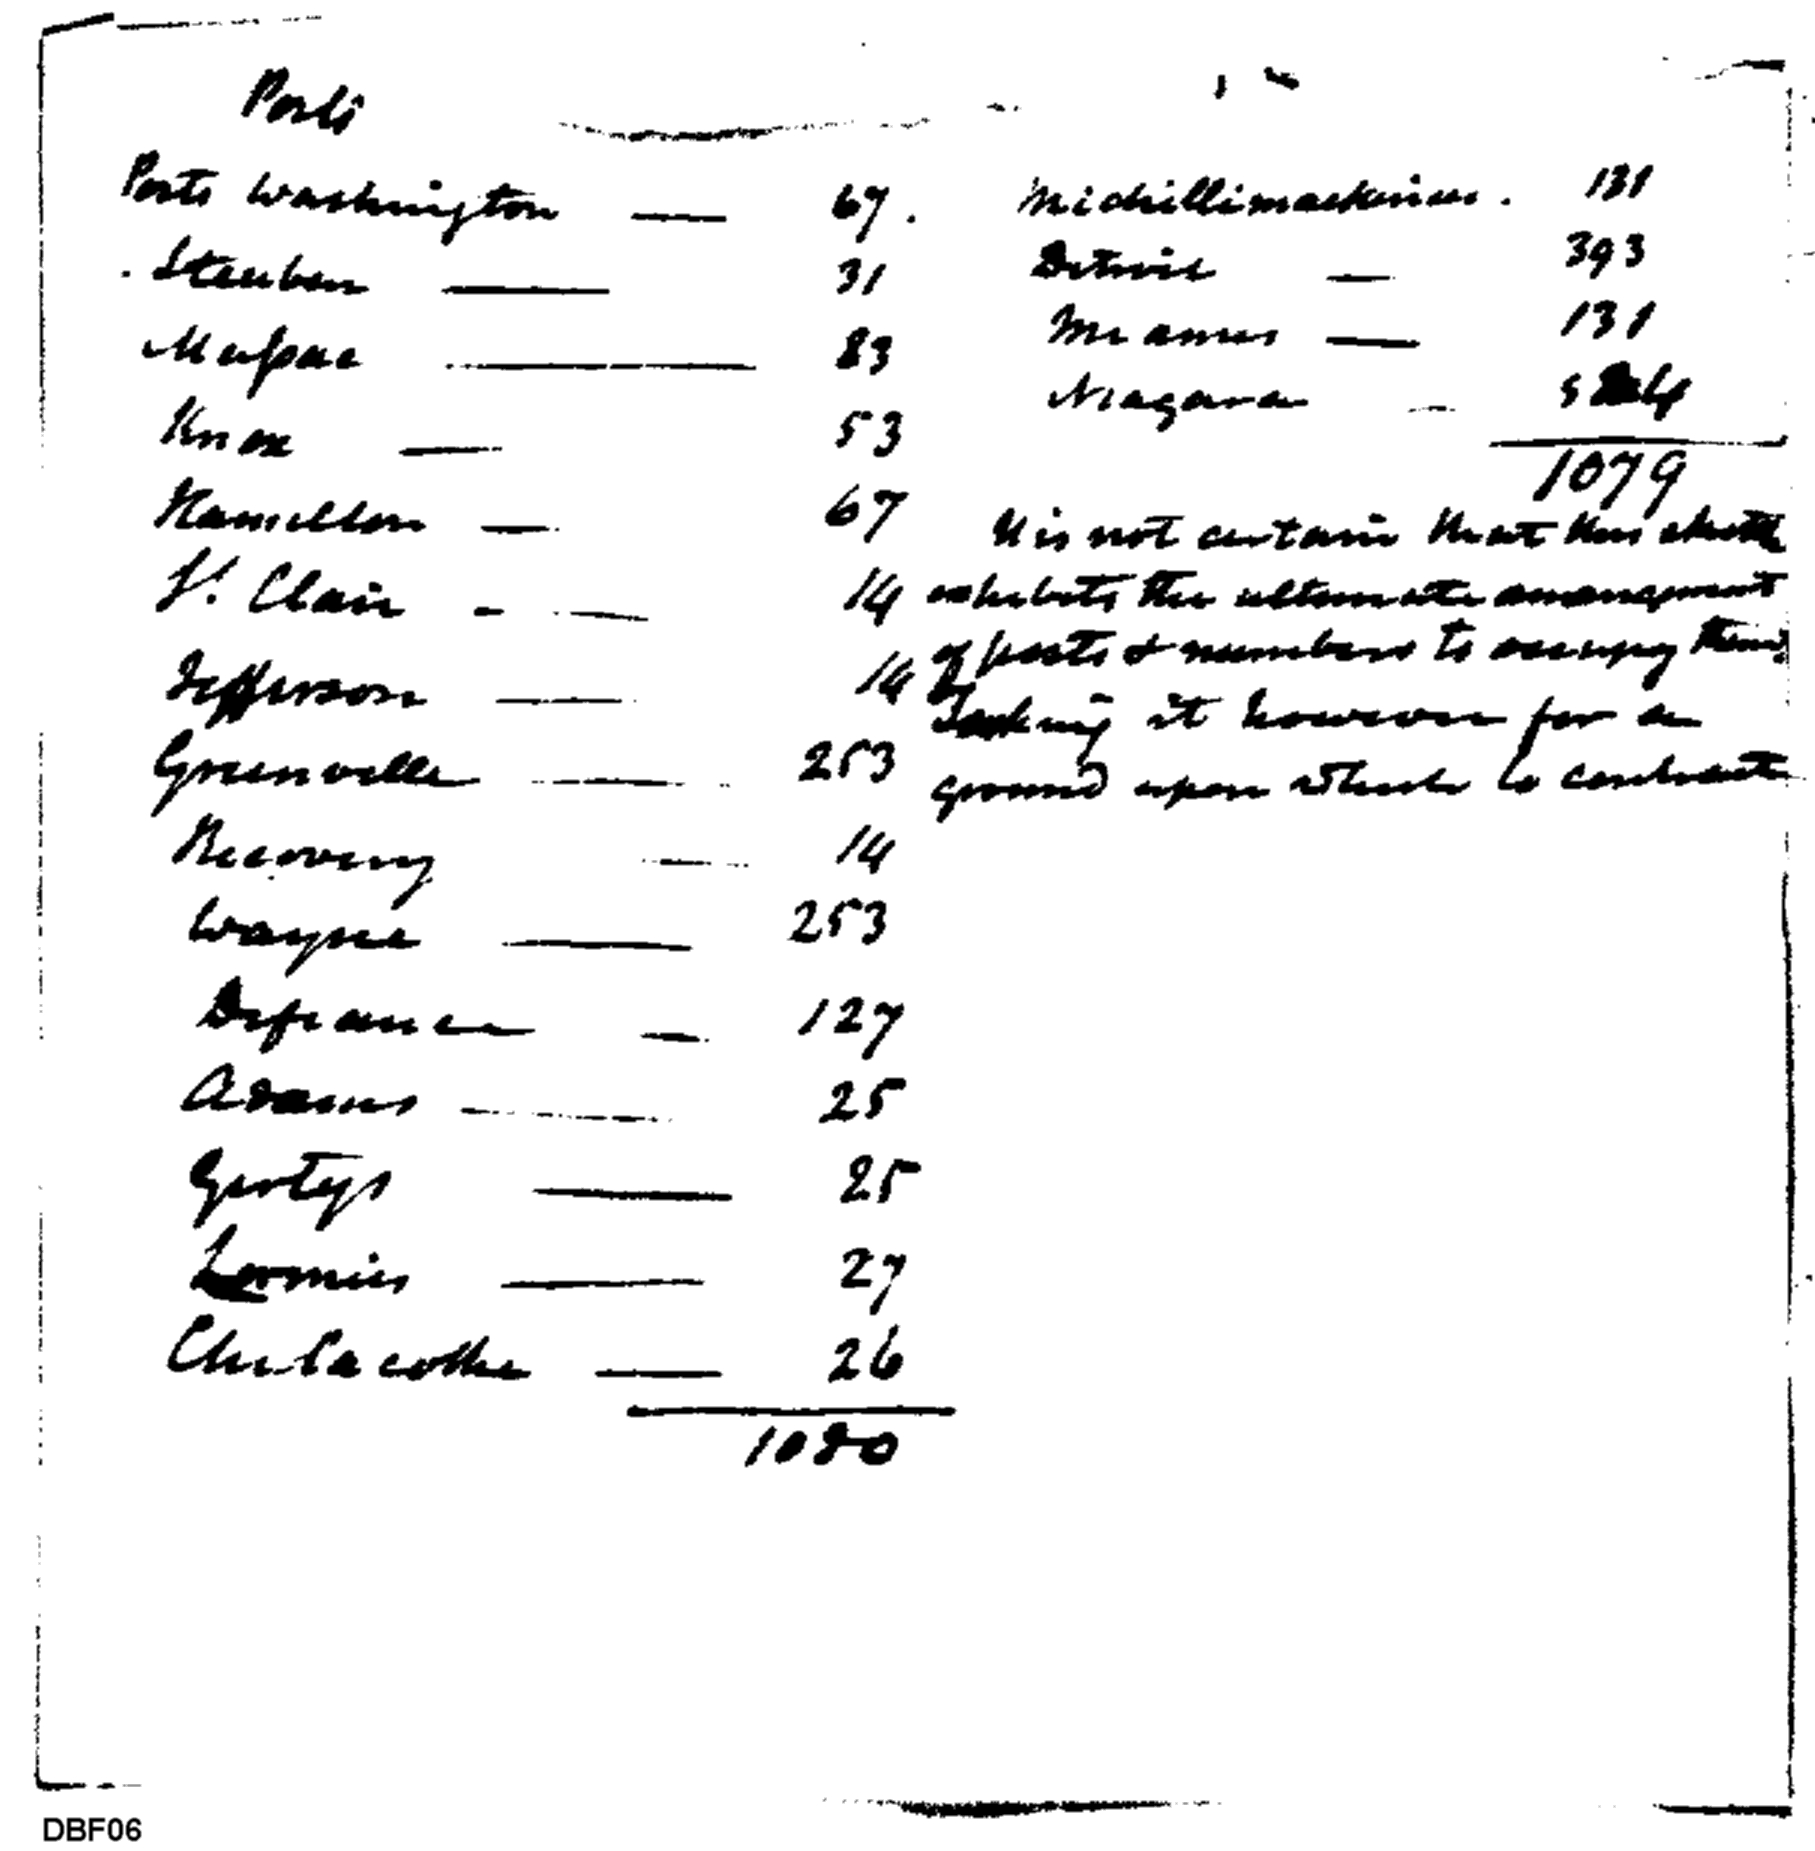 Posts
Forts Washington — 67.
Steuben — 31
Massac — 83
Knox — 53
Hamilton — 67
St. Clair — 14
Jefferson — 14
Greenville — 253
Recovery — 14
Wayne — 253
Defiance — 127
Adams — 25
Gertys — 25
Loomies — 27
Chilacothe — 26
1080
Michillimackinac. 131
Detroit — 393
Miamis — 131
Niagara —
1079
It is not certain that this sketch
exhibits the ultimate arrangement
of posts & numbers to occupy them.
Taking it however for a
ground upon which to contract
DBF06